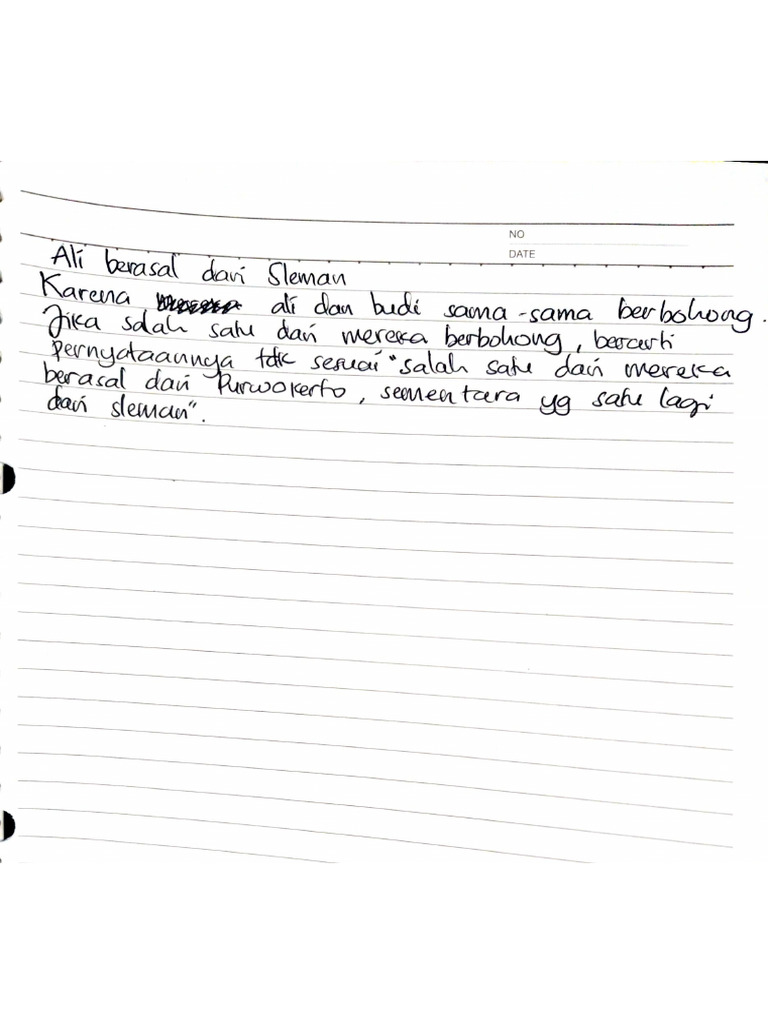 NO
DATE
Ali berasal dari Sleman
Karena ali dan budi sama-sama berbohong.
Jika salah satu dari mereka berbohong, berarti
pernyataannya tdk sesuai "salah satu dari mereka
berasal dari Purwokerto, sementara yg satu lagi
dari sleman".